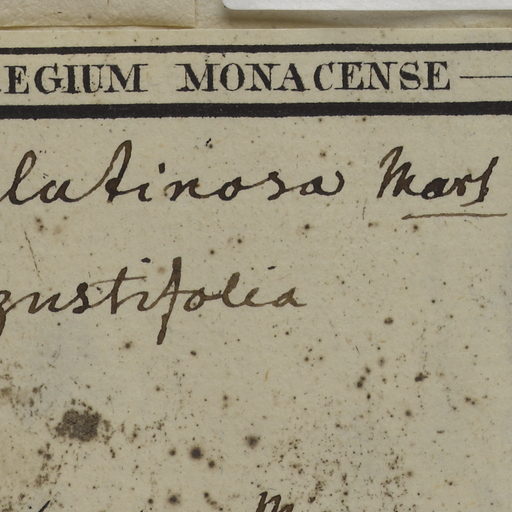 EGIUM MONACENSE
lutinosa Mart
gustifolia